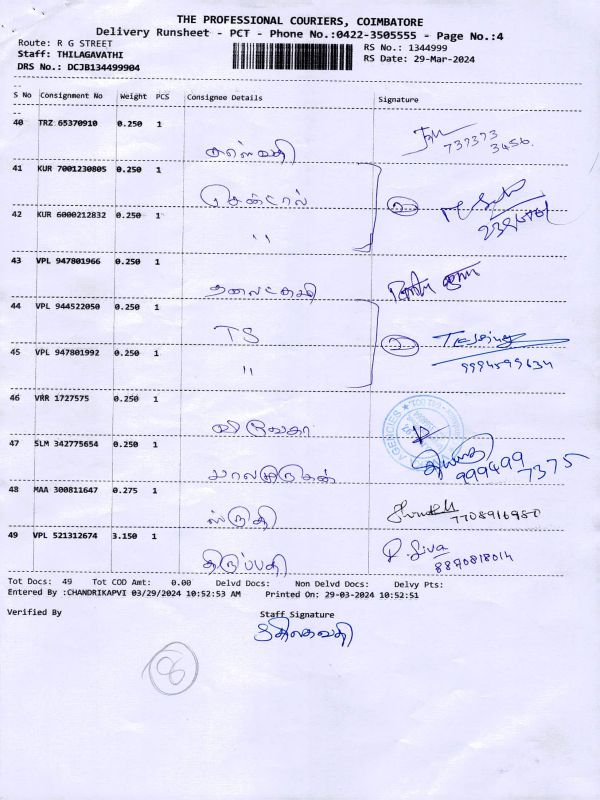 THE PROFESSIONAL COURIERS, COIMBATORE
Delivery Runsheet - PCT - Phone No.:0422-3505555 - Page No.:4
Route: R G STREET
RS No.: 1344999
Staff: THILAGAVATHI
RS Date: 29-Mar-2024
DRS No.: DCJB134499904
S No Consignment No Weight PCS Consignee Details Signature
40 TRZ 65370910 0.250 1
737373
3456.
41 KUR 7001230805 0.250 1 சென்ட்ரல் 2
42 KUR 6000212832 0.250 1 "
43 VPL 947801966 0.250 1
44 VPL 944522050 0.250 1 TS 2
45 VPL 947801992 0.250 1 "
9994599634
46 VRR 1727575 0.250 1
AGENCIES
47 SLM 342775654 0.250 1 பாலமுருகன் 999499 7375
48 MAA 300811647 0.275 1 ஸ்ருதி
7708916980
49 VPL 521312674 3.150 1 திருப்பதி R. Siva
8870818014
Tot Docs: 49 Tot COD Amt: 0.00 Delvd Docs: Non Delvd Docs: Delvy Pts:
Entered By :CHANDRIKAPVI 03/29/2024 10:52:53 AM Printed On: 29-03-2024 10:52:51
Verified By Staff Signature
திலகவதி